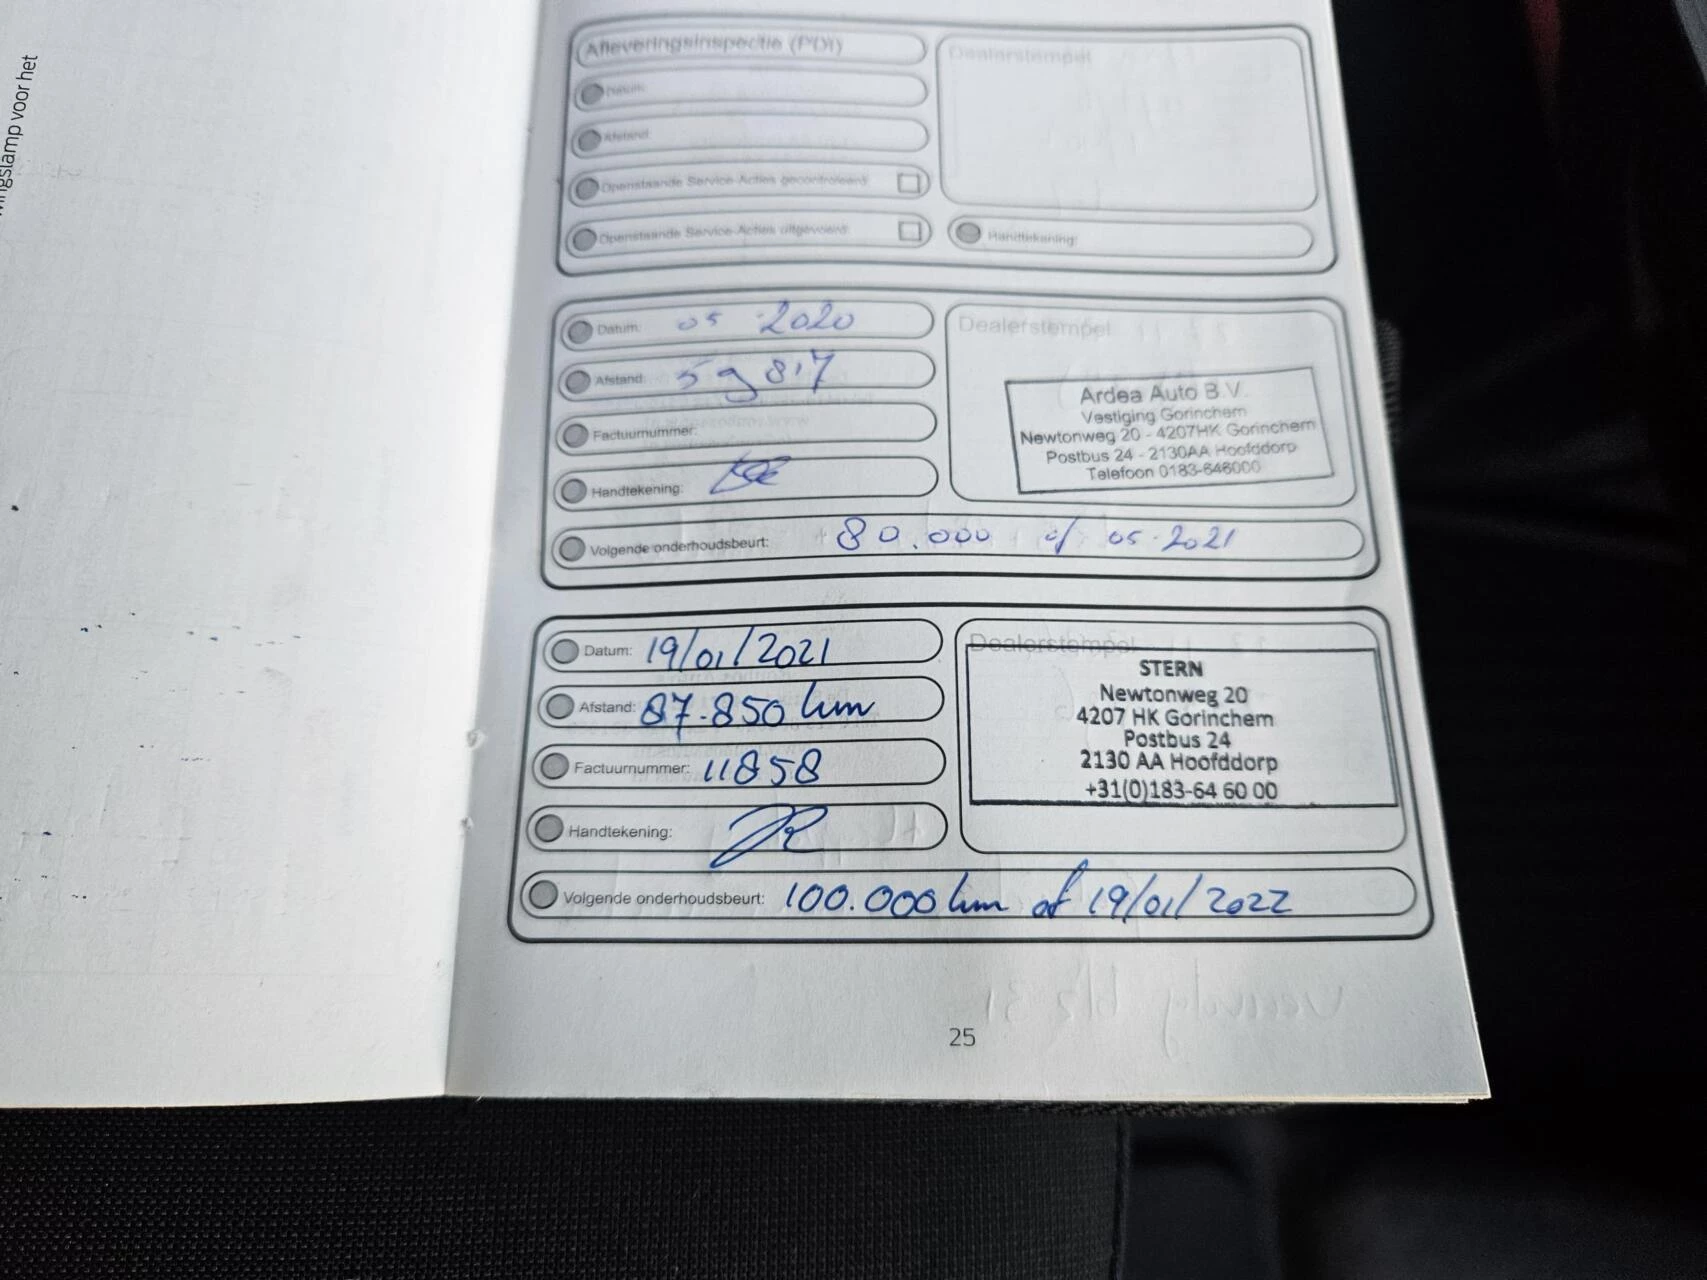 wingslamp voor het
Afleveringsinspectie (PDI)
Dealerstempel
Datum:
Afstand:
Openstaande Service-Acties gecontroleerd:
Openstaande Service-Acties uitgevoerd:
Handtekening:
Datum: 05 2020
Dealerstempel
Afstand: 59 817
Ardea Auto B.V.
Vestiging Gorinchem
Newtonweg 20 - 4207HK Gorinchem
Postbus 24 - 2130AA Hoofddorp
Telefoon 0183-646000
Factuurnummer:
Handtekening:
Volgende onderhoudsbeurt: 80.000 of 05-2021
Datum: 19/01/2021
Dealerstempel
Afstand: 87.850 km
STERN
Newtonweg 20
4207 HK Gorinchem
Postbus 24
2130 AA Hoofddorp
+31(0)183-64 60 00
Factuurnummer: 11858
Handtekening:
Volgende onderhoudsbeurt: 100.000 km of 19/01/2022
25